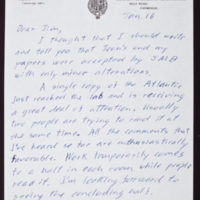 Jan. 16
Dear Jim,
I thought that I should write
and tell you that Joan's and my
papers were accepted by JMB
with only minor alterations.
A single copy of the Atlantic
just reached the lab and is receiving
a great deal of attention. Usually
two people are trying to read it at
the same time. All the comments that
I've heard so far are enthusiastically
favorable. Work temporarily comes
to a halt in each room while people
read it. I'm looking forward to
seeing the concluding